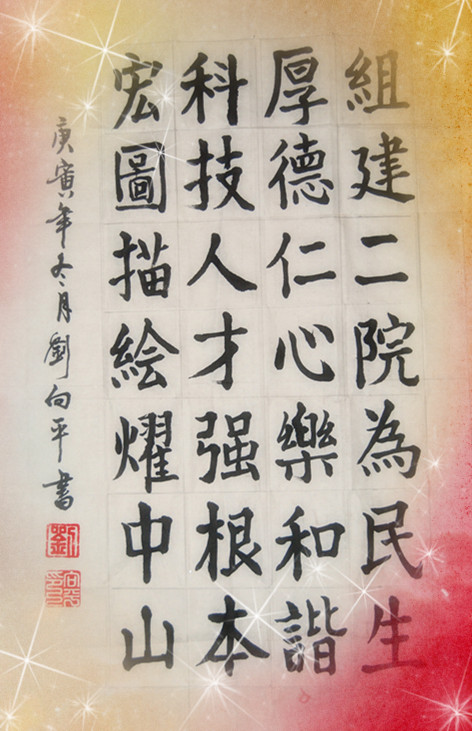 組建二院為民生
厚德仁心樂和諧
科技人才强根本
宏圖描绘耀中山
庚寅年冬月劉向平書
劉